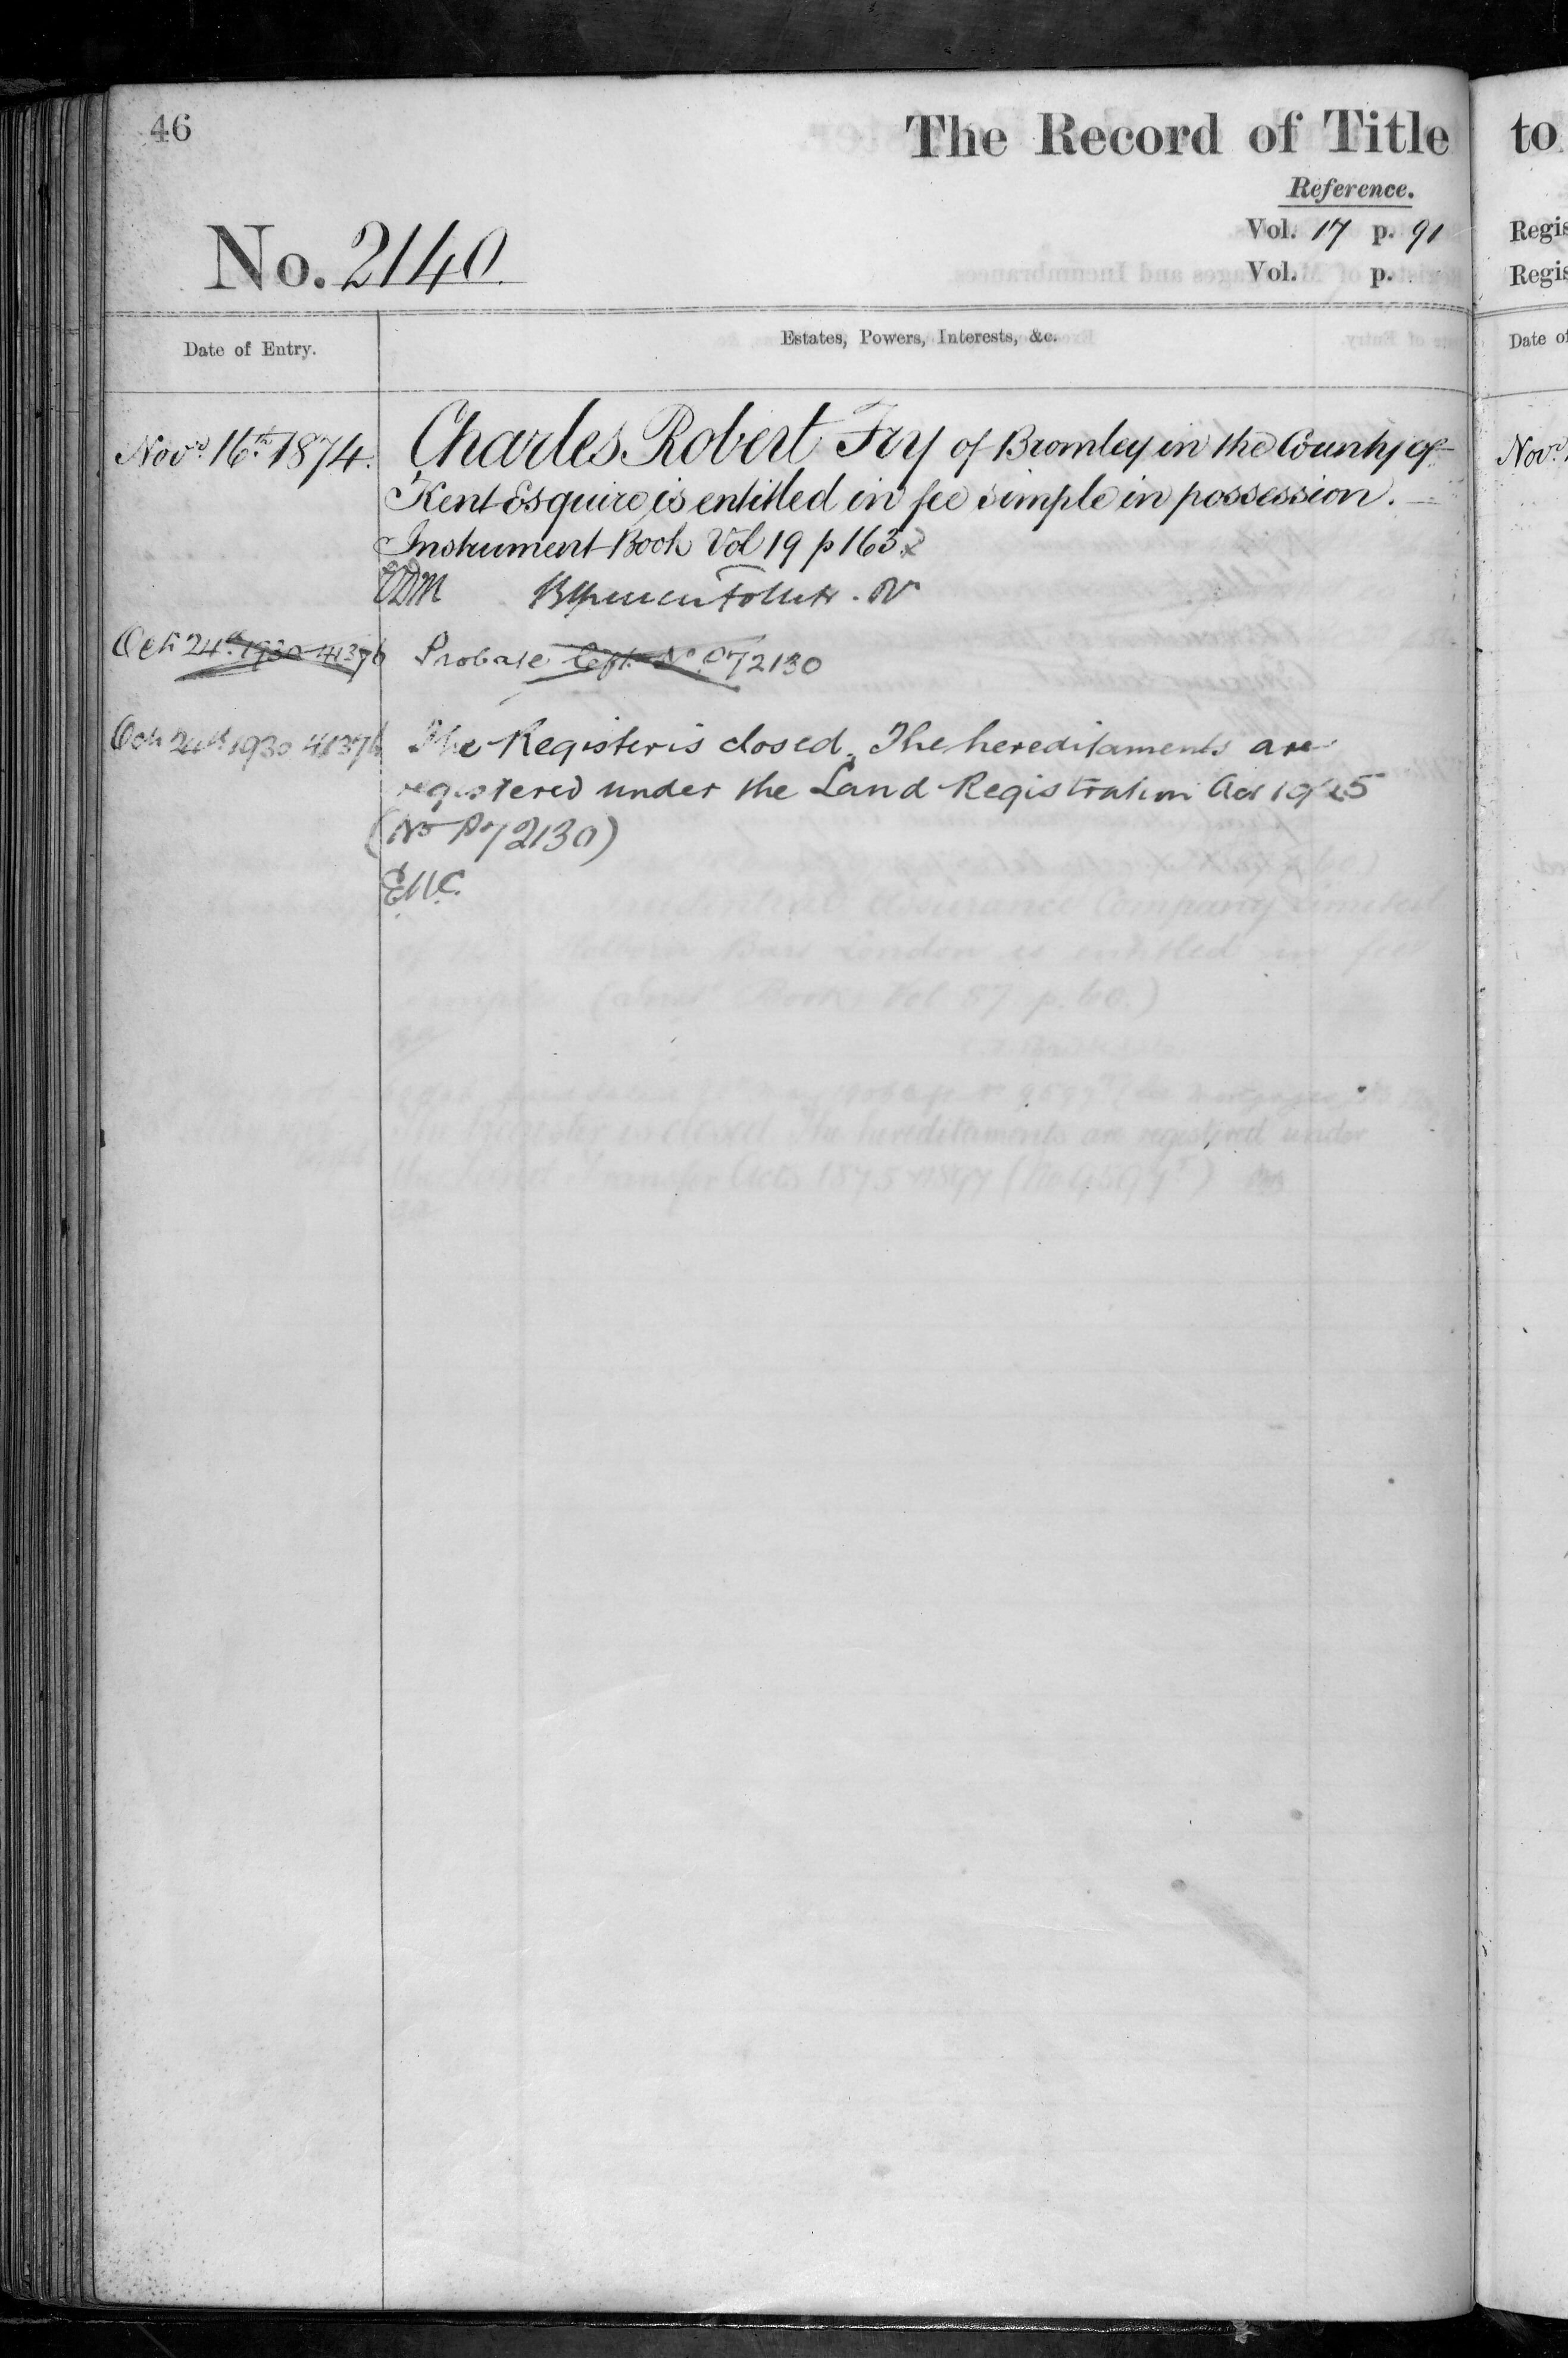 46
The Record of Title
to
Reference.
Vol. 17 p. 91
Regis
No. 2140.
Vol. p.
Regis
Date of Entry.
Estates, Powers, Interests, &c.
Date of
Novr. 16th 1874.
Charles Robert Fry of Bromley in the County of
Novr.
Kent Esquire is entitled in fee simple in possession.
Instrument Book Vol 19 p 163
Oct 24th 1930 41376
Probate No P72130
Oct 24th 1930 41376
The Register is closed. The hereditaments are
registered under the Land Registration Act 1925
(No P72130)